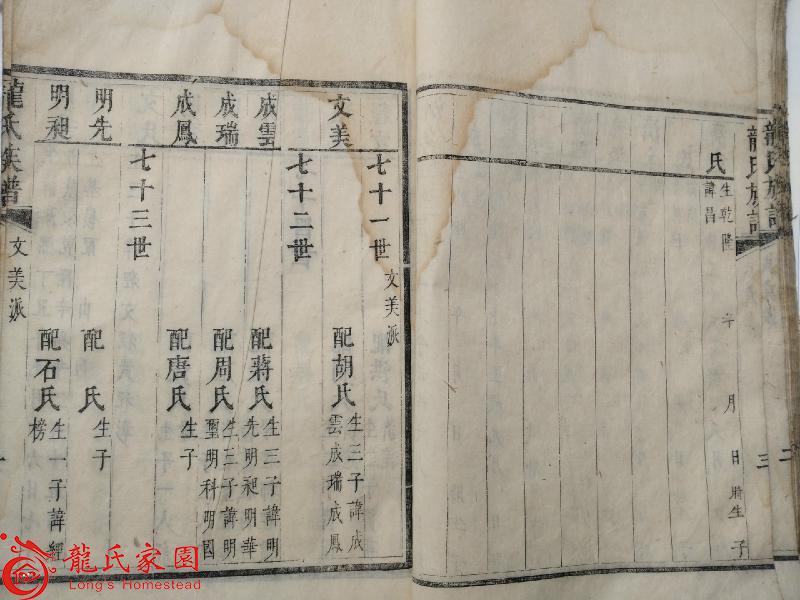 龍氏族譜
二
龍氏族譜
三
氏 生乾隆 年 月 日時生 子
諱昌
七十一世 文美派
文美 配胡氏 生三子諱成
雲成瑞成鳳
七十二世
成雲 配蔣氏 生三子諱明
先明昶明華
成瑞 配周氏 生三子諱明
聖明科明國
成鳳 配唐氏 生子
七十三世
明先 配 氏 生子
明昶 配石氏 生一子諱經
榜
龍氏族譜 文美派
龍氏家園
Long's Homestead